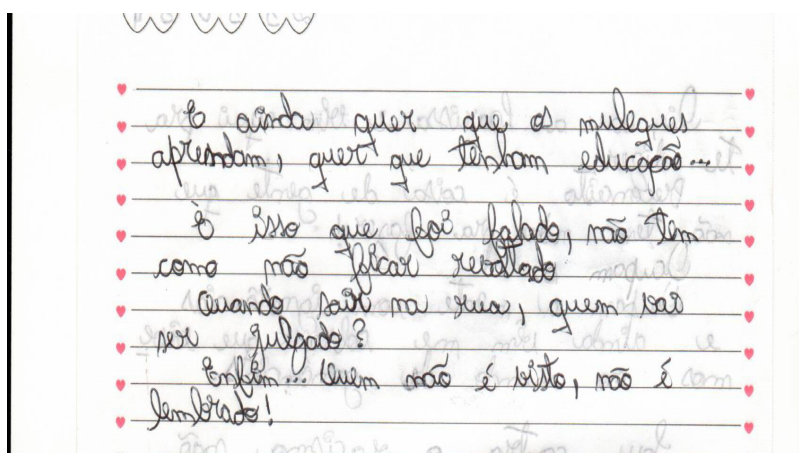 E ainda quer que os muleques
aprendam, quer que tenham educação...
É isso que foi falado, não tem
como não ficar revoltado
Quando sair na rua, quem vai
ser julgado?
Enfim... Quem não é visto, não é
lembrado!